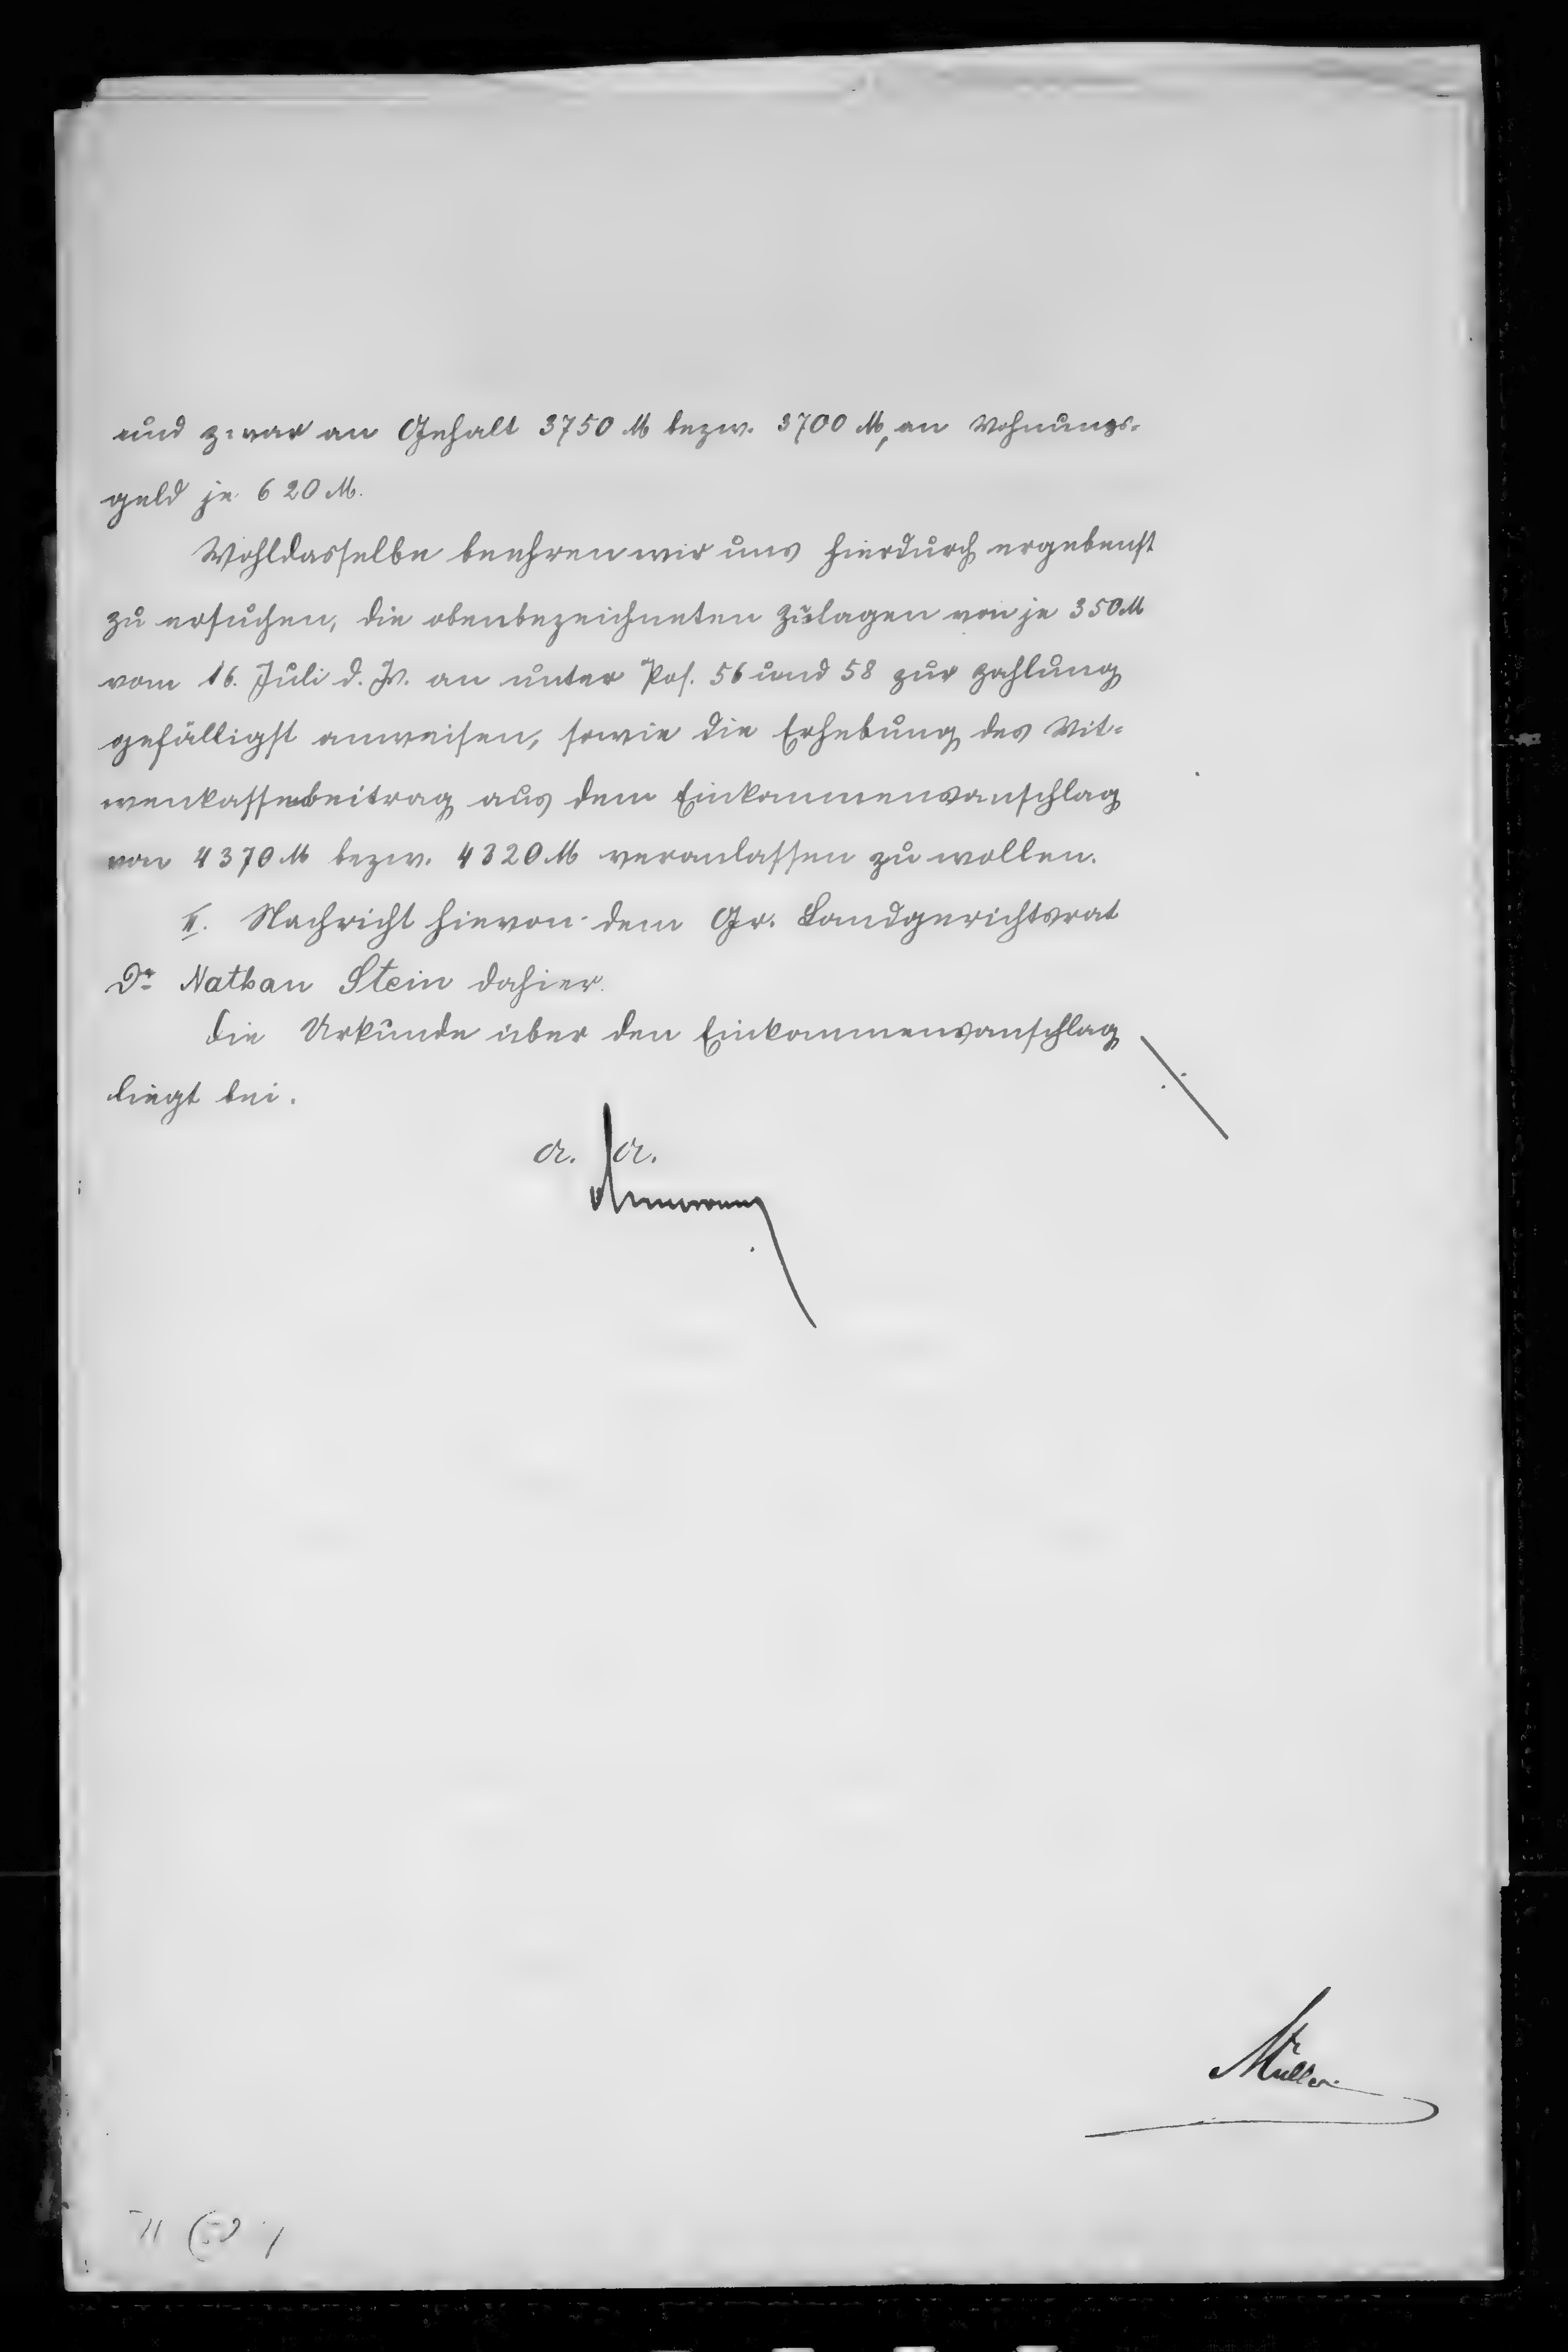 und zwar an Gehalt 3750 M bezw. 3700 M, an Wohnungs-
geld je 620 M.
Wohldasselbe beehren wir uns hierdurch ergebenst
zu ersuchen, die obenbezeichneten Zulagen von je 350 M
vom 16. Juli d. Js. an unter Pos. 56 und 58 zur Zahlung
gefälligst anweisen, sowie die Erhebung des Wit-
wenkassenbeitrag aus dem Einkommensanschlag
von 4370 M bezw. 4320 M veranlassen zu wollen.
II. Nachricht hievon dem Gr. Landgerichtsrat
Dr Nathan Stein dahier.
Die Urkunde über den Einkommensanschlag
liegt bei.
Müller